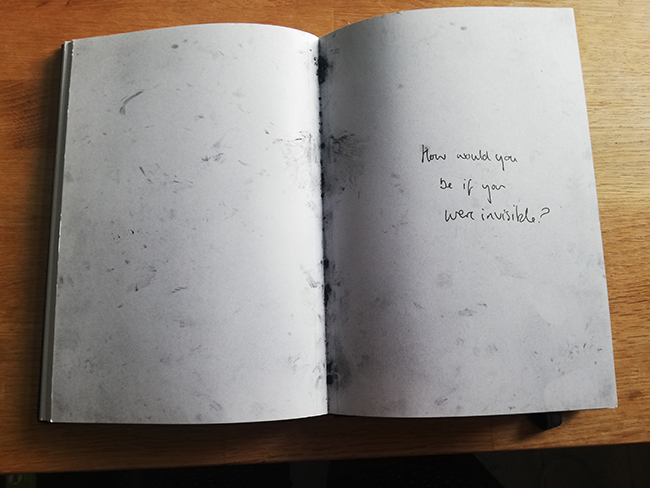 How would you
be if you
were invisible?